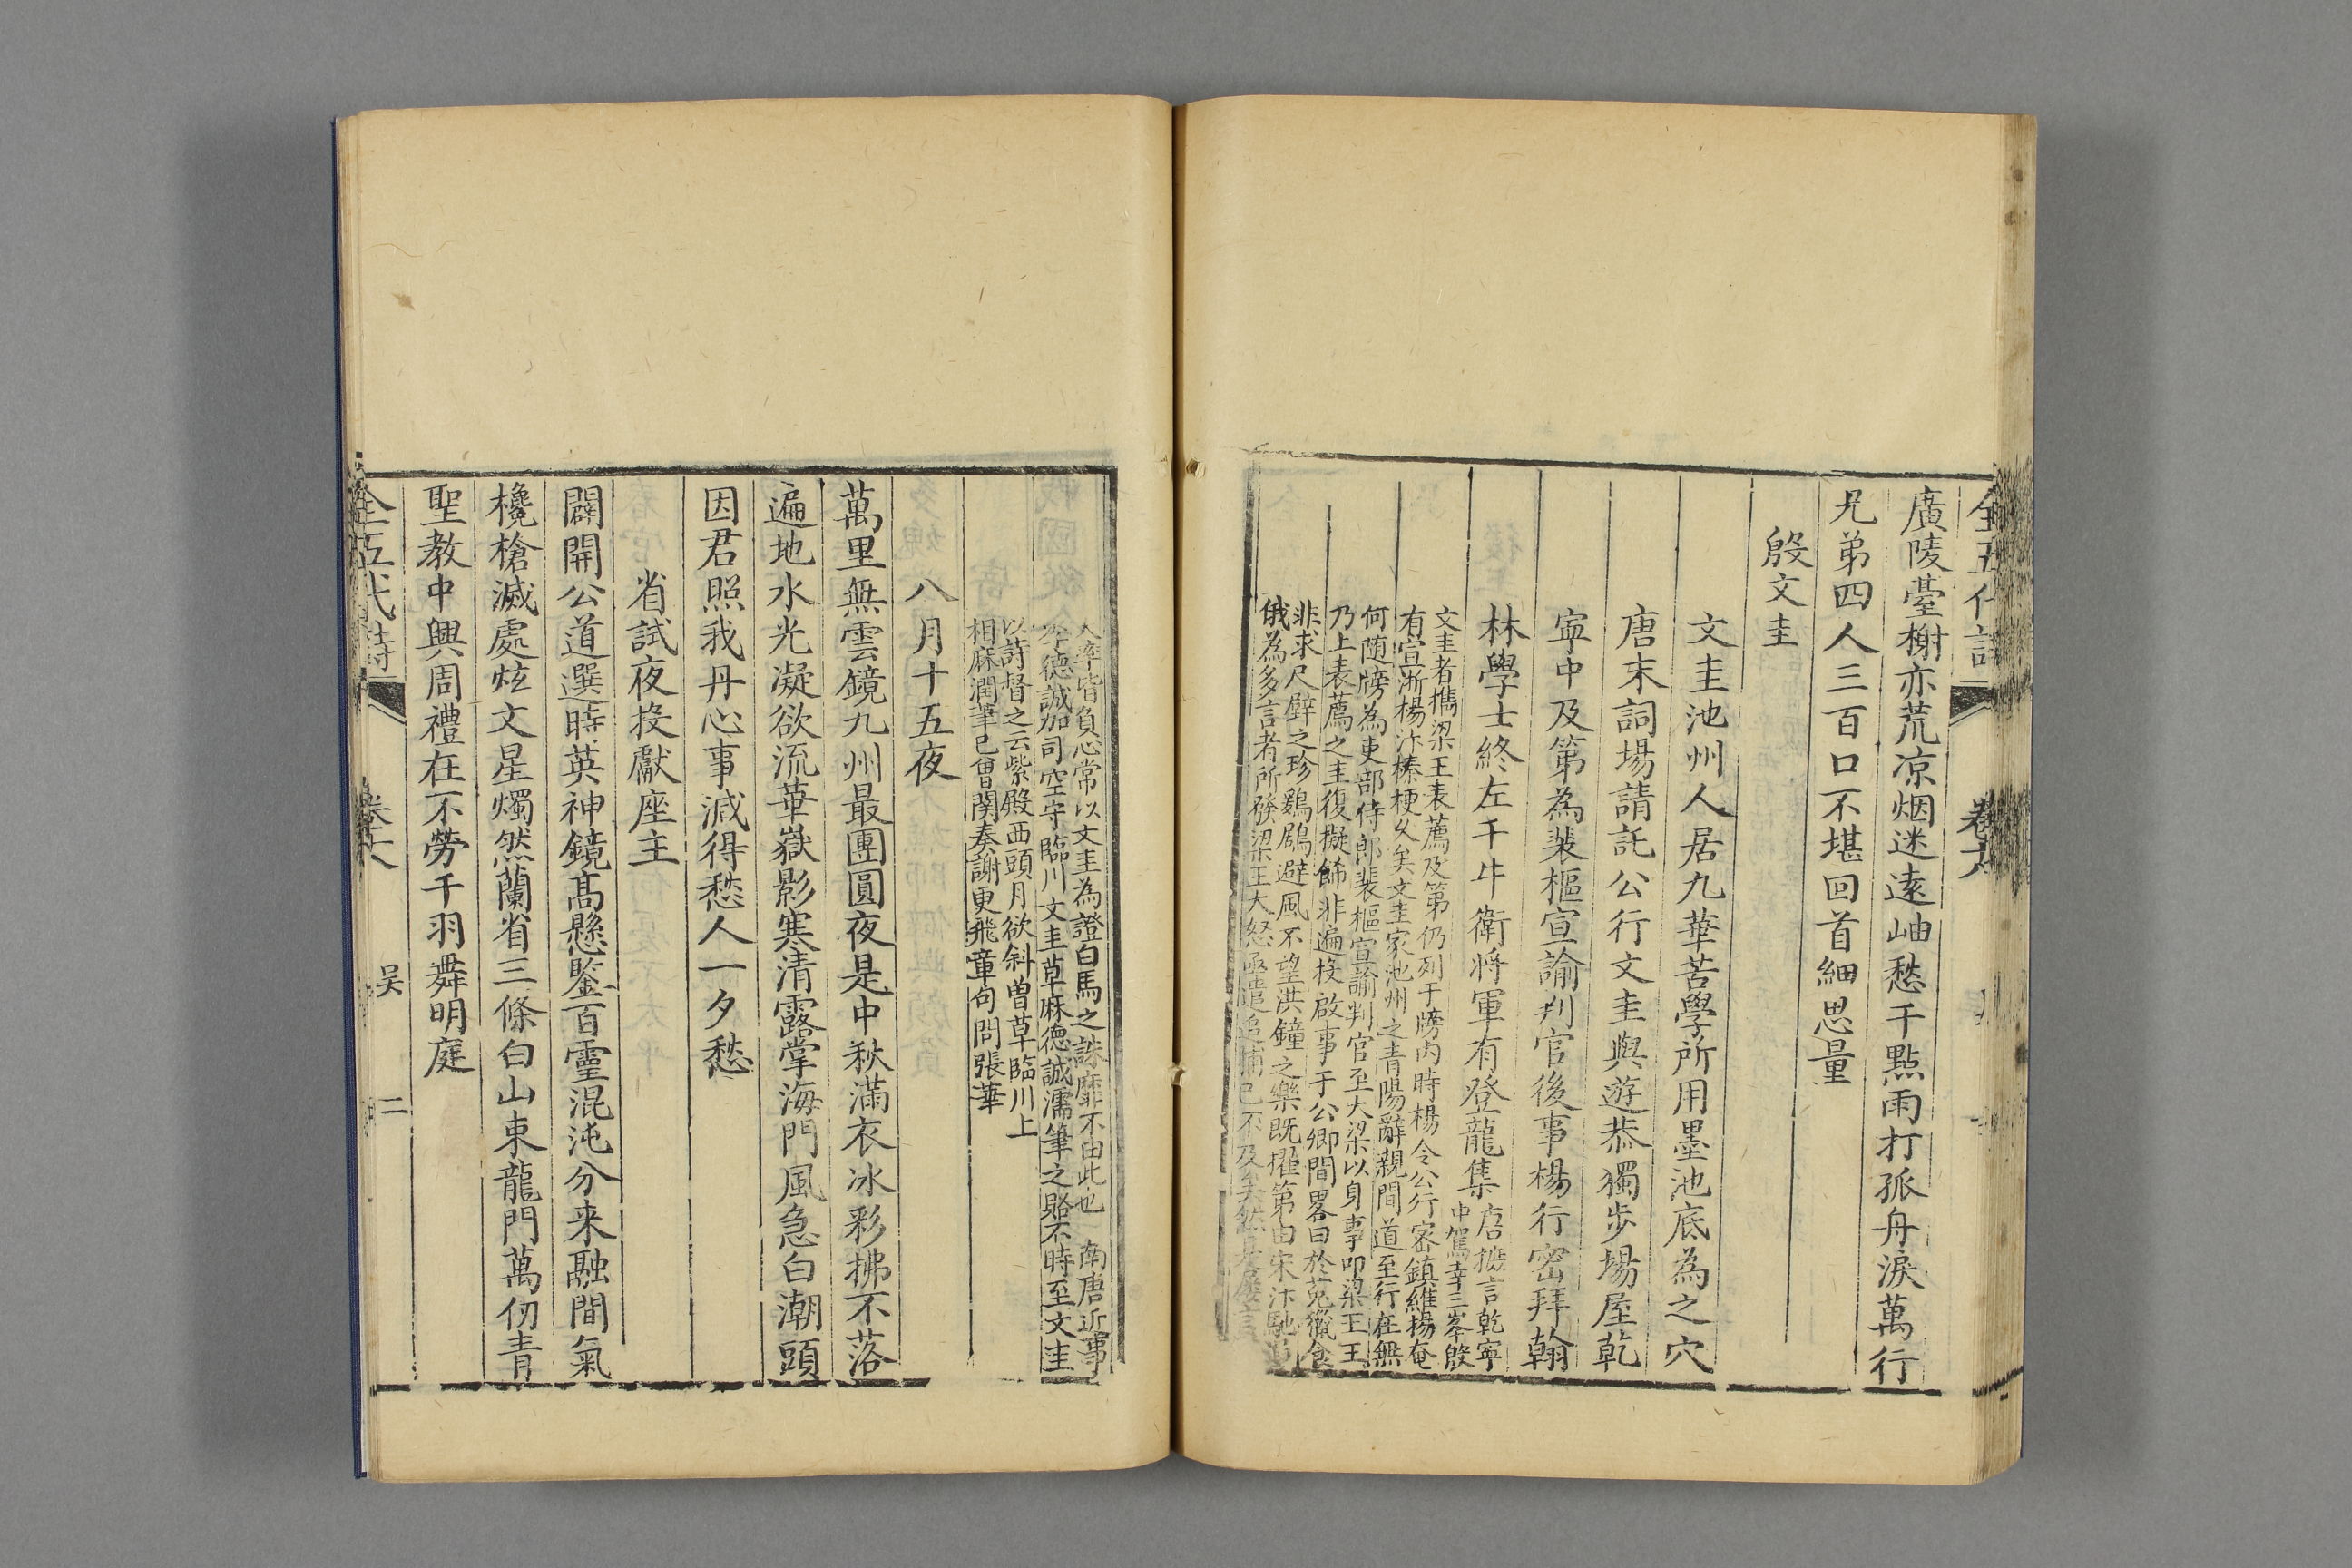 廣陵臺榭亦荒凉烟迷遠岫愁千點雨打孤舟淚萬行
兄弟四人三百口不堪回首細思量
殷文圭
文圭池州人居九華苦學所用墨池底為之穴
唐末詞場請託公行文圭與遊恭獨步場屋乾
寧中及第為裴樞宣諭判官後事楊行密拜翰
林學士終左千牛衛將軍有登龍集
唐摭言乾寧
中駕幸三峯殷
文圭者攜梁王表薦及第仍列于牓內時楊令公行密鎮維楊奄
有宣浙楊汴榛梗久矣文圭家池州之青陽辭親間道至行在無
何隨牓為吏部侍郎裴樞宣諭判官至大梁以身事叩梁王王
乃上表薦之圭復擬飾非遍投啟事于公卿間畧曰於菟獵食
非求尺璧之珍鷄鶋避風不望洪鐘之樂既擢第由宋汴馳
俄為多言者所發梁王大怒亟遣追捕已不及矣然是屢言
人率皆負心常以文圭為證白馬之誅靡不由此也 南唐近事
德誠加司空守臨川文圭草麻德誠濡筆之賂不時至文圭
以詩督之云紫殿西頭月欲斜曾草臨川上
相麻潤筆已曾關奏謝更飛章句問張華
八月十五夜
萬里無雲鏡九州最團圓夜是中秋滿衣冰彩拂不落
遍地水光凝欲流華嶽影寒清露掌海門風急白潮頭
因君照我丹心事減得愁人一夕愁
省試夜投獻座主
闢開公道選時英神鏡高懸鑒百靈混沌分来融間氣
欃槍滅處炫文星燭然蘭省三條白山束龍門萬仞青
聖教中興周禮在不勞千羽舞明庭
全五代詩 卷十八 吴 二